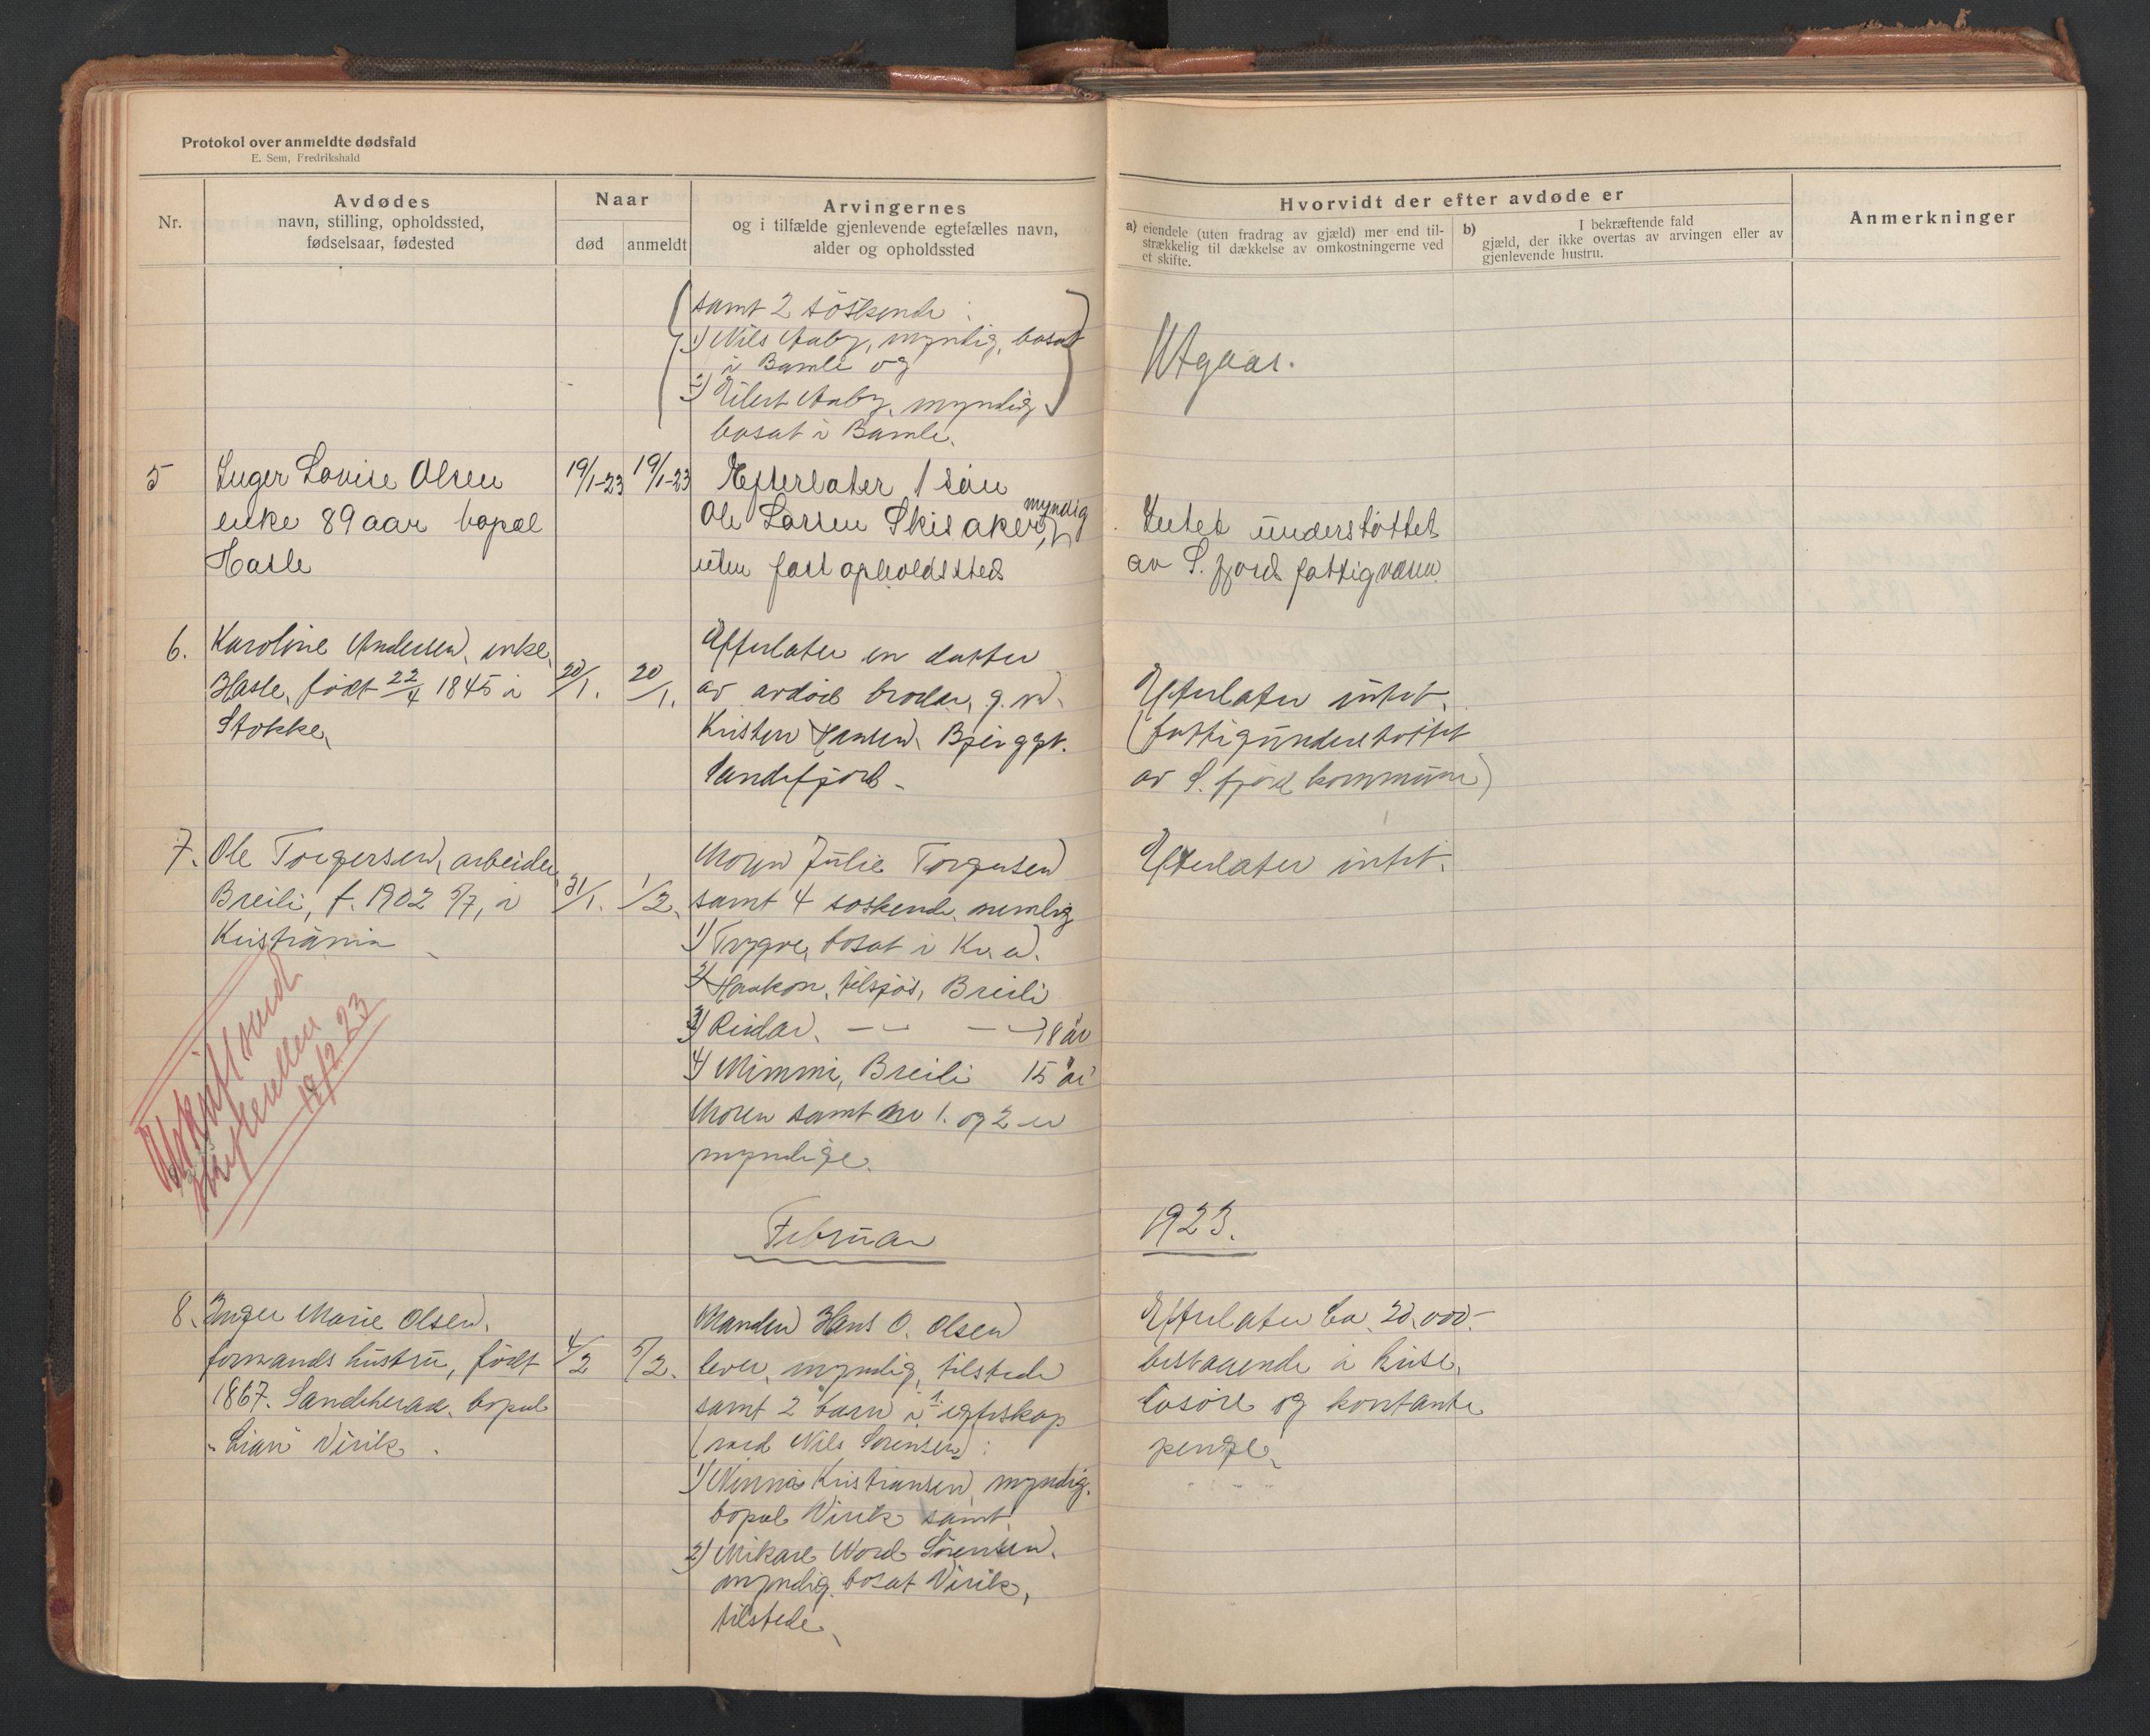 Protokol over anmeldte dødsfald
E. Sem, Fredrikshald
Nr.
Avdødes
navn, stilling, opholdssted,
fødselsaar, fødested
Naar
død
anmeldt
Arvingernes
og i tilfælde gjenlevende egtefælles navn,
alder og opholdssted
Hvorvidt der efter avdøde er
a) eiendele (uten fradrag av gjæld) mer end til-
strækkelig til dækkelse av omkostningerne ved
et skifte.
b) I bekræftende fald
gjæld, der ikke overtas av arvingen eller av
gjenlevende hustru.
Anmerkninger
samt 2 söskende :
1) Nils Aaby, myndig, bosat
i Bamle og
2) Eilert Aaby, myndig
bosat i Bamle.
Utgaar.
5 Inger Lovise Olsen
enke 89 aar bopæl
Hasle
19/1-23 19/1-23
Efterlater 1 sön
myndig
Ole Larsen Skisaker,
uten fast opholdssted
Intet understöttet
av S. fjords fattigvæsen
6. Karoline Andersen, enke,
Hasle, födt 22/4 1845 i
Stokke,
20/1. 20/1.
Efterlater en datter
av avdöd broder, g. m.
Kristen Hansen, Bjerggt.
Sandefjord -
Efterlater intet.
(fattigunderstöttet
av S. fjord kommune)
7. Ole Torgersen, arbeider,
Breili, f. 1902 5/7, i
Kristiania
31/1. 1/2.
Moren Julie Torgersen
samt 4 söskende, nemlig
1) Trygve, bosat i Kr.a.
2) Haakon, tilsjös, Breili
3) Reidar, — — 18 år
4) Mimmi, Breili 15 år
Moren samt nr 1. og 2 er
myndige.
Efterlater intet.
Utskrift sendt
19/2 23
Februar
1923.
8. Inger Marie Olsen,
formands hustru, födt
1867. Sandeherad, bopæl
"Lian" Virik.
4/2 5/2.
Manden Hans O. Olsen
lever, myndig, tilstede
samt 2 barn i 1. egteskap
(med Nils Sörensen) :
1) Minna Kristiansen, myndig.
bopæl Virik samt
2) Mikael Nord Sörensen,
myndig, bosat Virik,
tilstede,
Efterlater ca. 20,000.-
bestaaende i huse,
lösöre og kontante
penge,